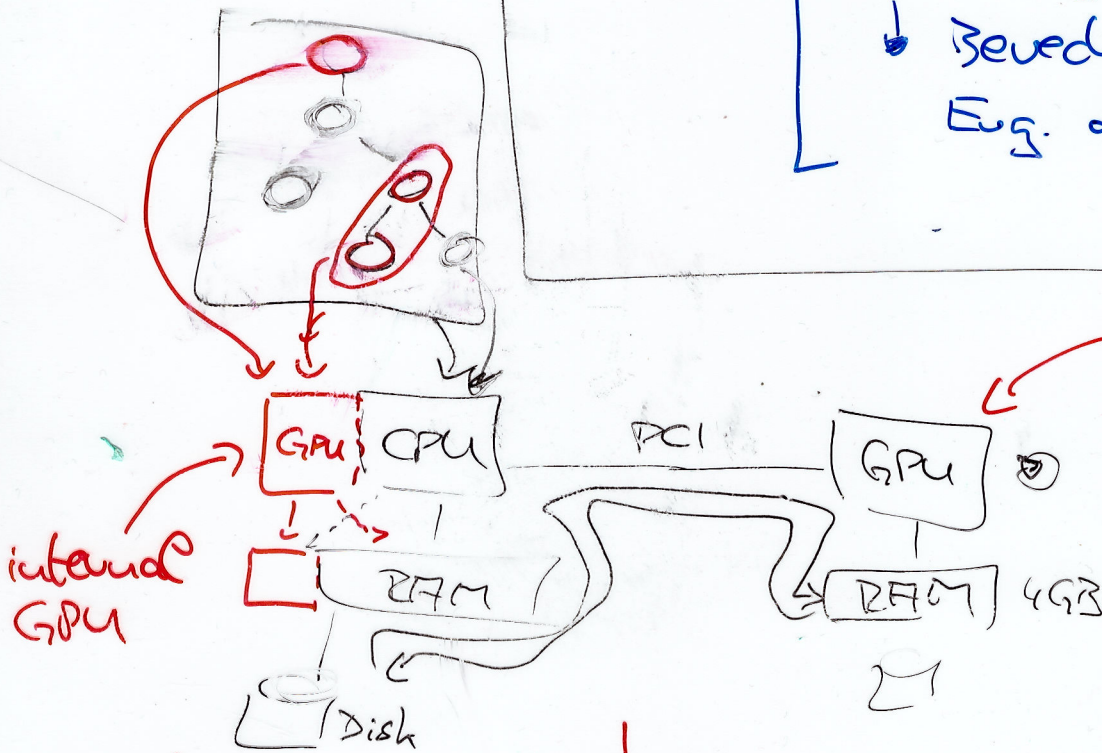 Eng.
GPU
CPU
PCI
GPU
internal
GPU
RAM
RAM
4GB
Disk